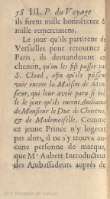 78 III. P. du Voyage
ils firent mille honnêtetez &
mille remerciemens.
Le jour qu'ils partirent de
Versailles pour retourner à
Paris, ils demanderent en
chemin, qu'on les fist passer par
S. Cloud, afin qu'ils pussent
voir encore la Maison de Mon-
sieur, qui leur avoit paru si belle
de Monsieur le Duc de Chartres,
& de Mademoiselle.
ce jeune Prince n'y logeoit
pas alors, il ne s'y trouva au-
cune personne de marque,
que Mr Aubert Introducteur
des Ambassadeurs auprès de